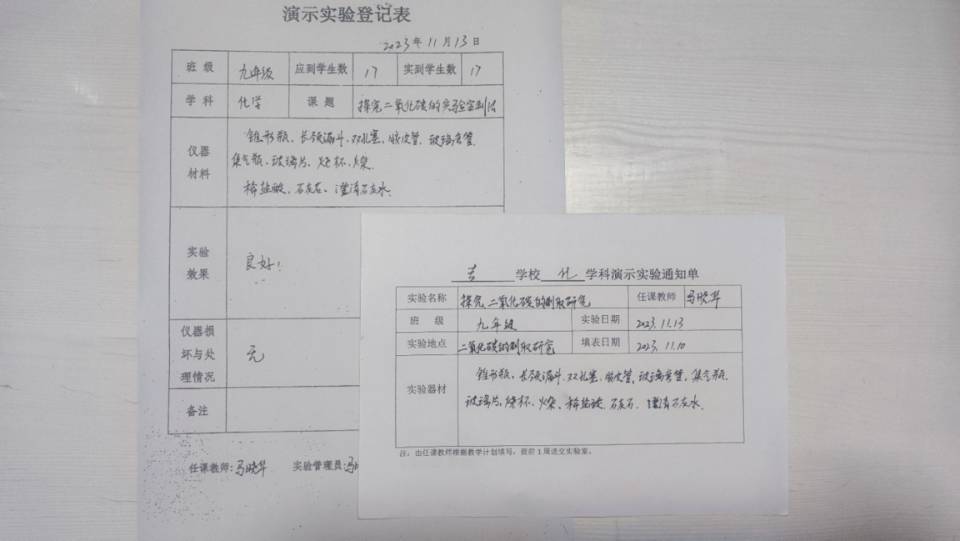 演示实验登记表
2023年11月13日
班级 九年级 应到学生数 17 实到学生数 17
学科 化学 课题 探究二氧化碳的实验室制法
仪器材料 锥形瓶、长颈漏斗、双孔塞、胶皮管、玻璃弯管、
集气瓶、玻璃片、烧杯、火柴、
稀盐酸、石灰石、澄清石灰水
实验效果 良好!
仪器损坏与处理情况 无
备注
任课教师:马晓华 实验管理员:马
学校 化 学科演示实验通知单
实验名称 探究二氧化碳的制取研究 任课教师 马晓华
班级 九年级 实验日期 2023.11.13
实验地点 二氧化碳的制取研究 填表日期 2023.11.10
实验器材 锥形瓶、长颈漏斗、双孔塞、胶皮管、玻璃弯管、集气瓶、
玻璃片、烧杯、火柴、稀盐酸、石灰石、澄清石灰水
注:由任课教师根据教学计划填写,提前1周送交实验室。